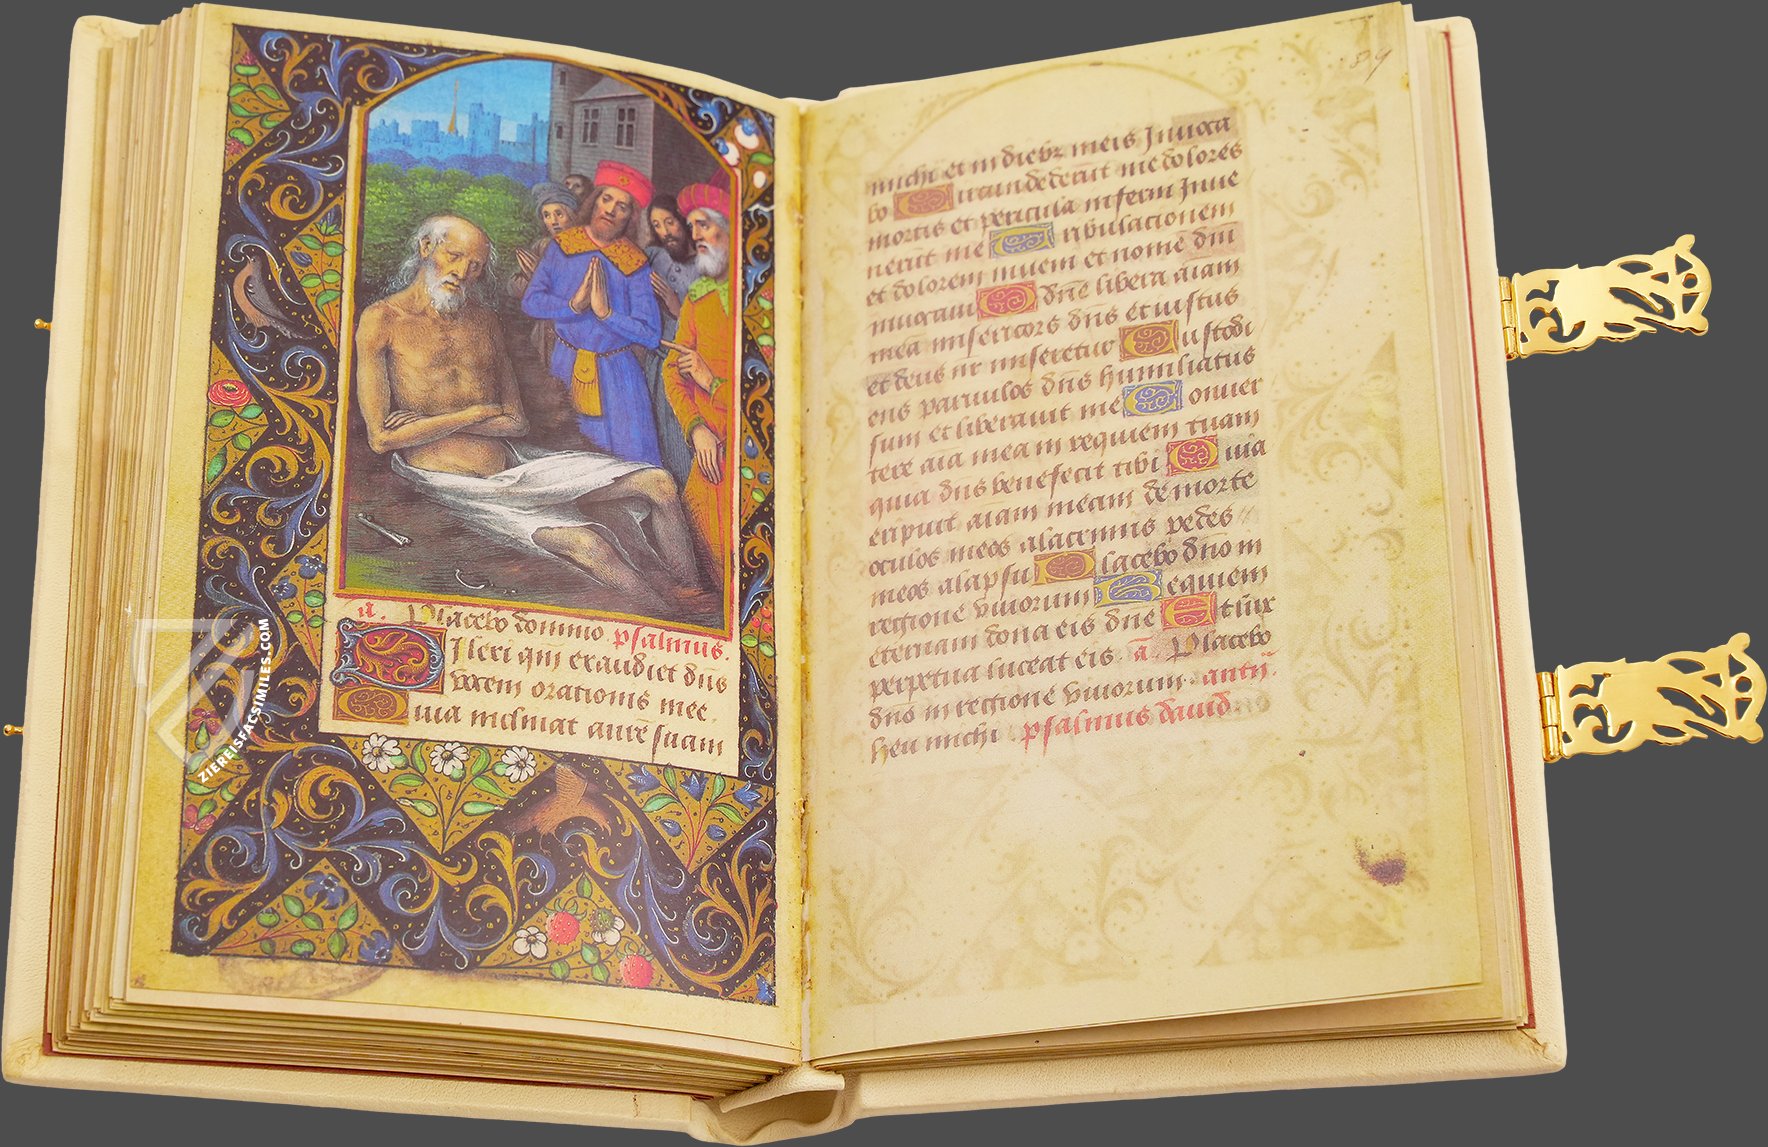 a. Placebo domino psalmus.
Dilexi qm exaudiet dñs
vocem orationis mee.
Quia inclinat aurē suam
89
michi et in diebz meis Inuoca
bo Circundederūt me dolores
mortis et pericula inferni Inue
nerūt me Tribulationem
et dolorem inueni et nomē dni
inuocaui O dñe libera aiam
mea misericors dñs et iustus
et deus nr miseretur Custodi
ens paruulos dñs humiliatus
sum et liberauit me Conuer
tere aia mea in requiem tuam
quia dñs benefecit tibi Quia
eripuit aiam meam de morte
oculos meos a lacrimis pedes
meos a lapsu Placebo dño in
regione viuorum Requiem
eternam dona eis dñe Et lux
perpetua luceat eis. a. Placebo
dño in regione viuorum. antiꝭ.
Heu michi psalmus dauid
ZIEREISFACSIMILES.COM